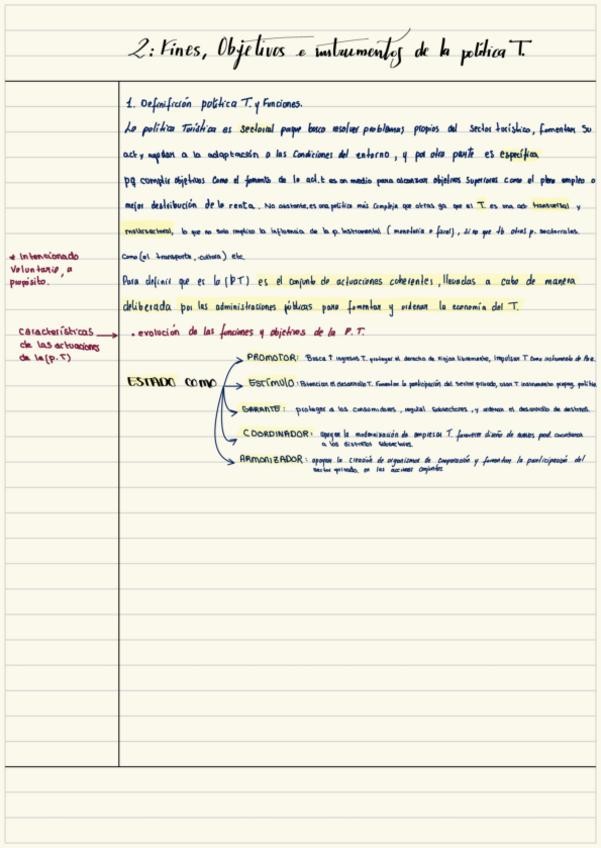 2: Fines, Objetivos e instrumentos de la política T.
1. Definifición política T. y Funciones.
La política Turística es sectorial porque busca resolver problemas propios del sector turístico, fomentar su
act y ayudar a la adaptación a las condiciones del entorno, y por otra parte es específica
pq cumplir objetivos como el fomento de la act.t es un medio para alcanzar objetivos superiores como el pleno empleo o
mejor distribución de la renta. No obstante, es una política más compleja que otras ya que el T. es una act transversal y
multisectorial, lo que no solo implica la influencia de la p. instrumental (monetaria o fiscal), si no que tb otras p. sectoriales.
como (el transporte, cultura) etc
* Intencionado
Voluntario, a
propósito.
Para definir que es la (PT) es el conjunto de actuaciones coherentes, llevadas a cabo de manera
deliberada por las administraciones públicas para fomentar y ordenar la economía del T.
Características
de las actuaciones
de la (p.T)
. evolución de las funciones y objetivos de la P.T.
ESTADO COMO
PROMOTOR: Busca ↑ ingresos T. proteger el derecho de viajar libremente, impulsar T. como instrumento de
ESTÍMULO: Potencian el desarrollo T. Fomentan la participación del sector privado, usan T instrumento
GARANTE: proteger a los consumidores, regular subsectores, y ordenar el desarrollo de destinos.
COORDINADOR: apoyar la modernización de empresas T. favorecer diseño de
a los distintos subsectores.
ARMONIZADOR: apoyar la creación de organismos de cooperación y fomentar la participación del
sector privado, en las acciones conjuntas